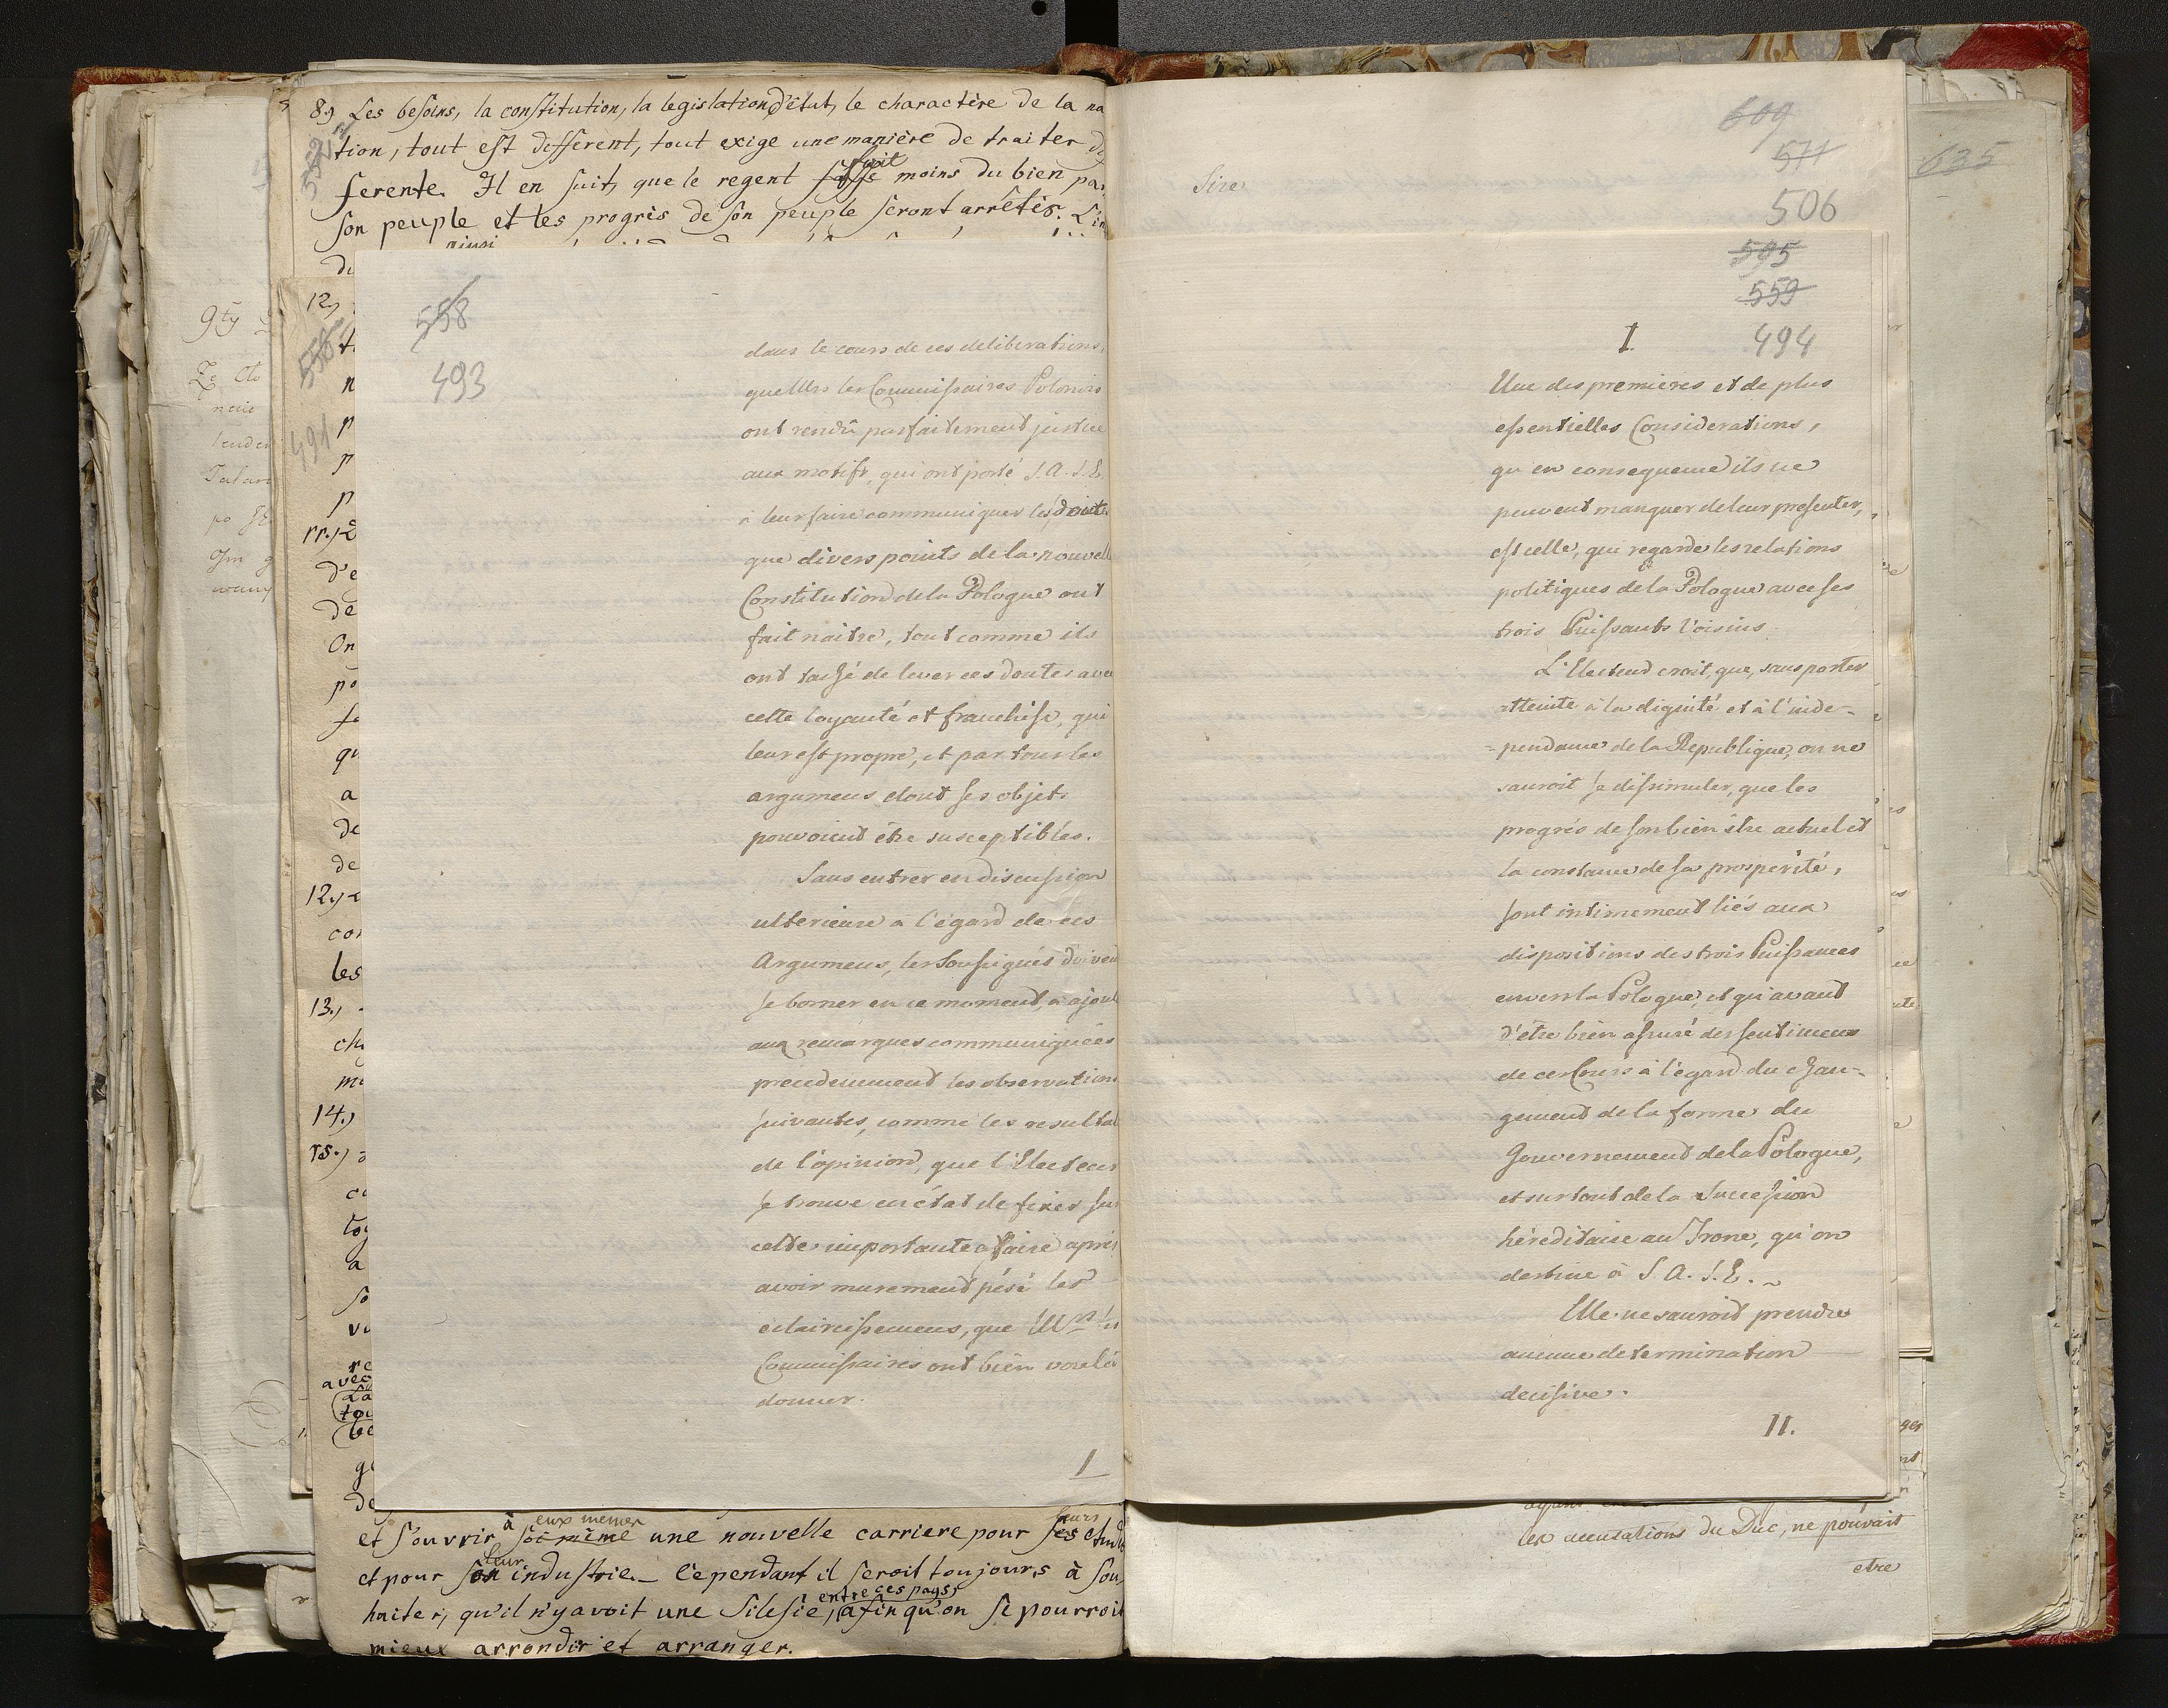 8.) Les besoins, la constitution, la legislation d'êtat, le charactère de la na
tion, tout est different, tout exige une manière de traiter di
ferente. Il en suit, que le regent fait moins du bien par
son peuple et les progrès de son peuple seront arrêtés. L'in
ainsi
12.)
491
rr.)
d'e
de
On
po
qu
a
de
de
12.)
con
les
13.)
14.)
rs.)
avec
558
493
dans le cours de ces deliberations,
que Mrs les Commissaires Polonois
ont rendû parfaitement justice
aux motifs, qui ont porté S. A. S. E.
à leur faire communiquer les doutes
que divers points de la nouvell
Constitution de la Pologne ont
fait naitre, tout comme ils
ont taché de lever ces doutes avec
cette loyauté et franchise, qui
leur est propre, et par tous les
argumens dont ses objets
pouvoient être susceptibles.
Sans entrer en discussion
ulterieure a l'égard de ces
Argumens, les Soussignés doivent
se borner en ce moment, à ajout
aux remarques communiquées
precedemment les observations
suivantes, comme les resultat
de l'opinion, que l'Electeur
se trouve en état de fixer sur
cette importante affaire après
avoir murement pésé les
eclaircissemens, que Mrs les
Commissaires ont bien voulû
donner.
I
et s'ouvrir à eux memes soi même une nouvelle carriere pour leurs ses etud
et pour leur son industrie. – Cependant il seroit toujours à sou
haiter, qu'il n'y avoit une Silesie, entre ces pays, afin qu'on se pourroit
mieux arrondir et arranger.
Sire
609
571
506
635
595
559
494
I.
Une des premieres et de plus
essentielles Considerations,
qu'en consequence ils ne
peuvent manquer de leur presenter,
est celle, qui regarde les relations
politiques de la Pologne avec ses
trois Puissants Voisins.
L'Electeur croit, que, sans porter
atteinte à la dignité et à l'inde-
=pendance de la Republique, on ne
sauroit se dissimuler, que les
progrès de son bien être actuel et
la constance de sa prosperité,
sont intimement liés aux
dispositions des trois Puissances
envers la Pologne, et qu'avant
d'être bien assuré des sentimens
de ces Cours à l'égard du chan-
gement de la forme du
Gouvernement de la Pologne,
et surtout de la Succession
héréditaire au Trone, qu'on
destine à S. A. S. E.
Elle ne sauroit prendre
aucune determination
decisive.
II.
les accusations du Duc, ne pouvait
etre